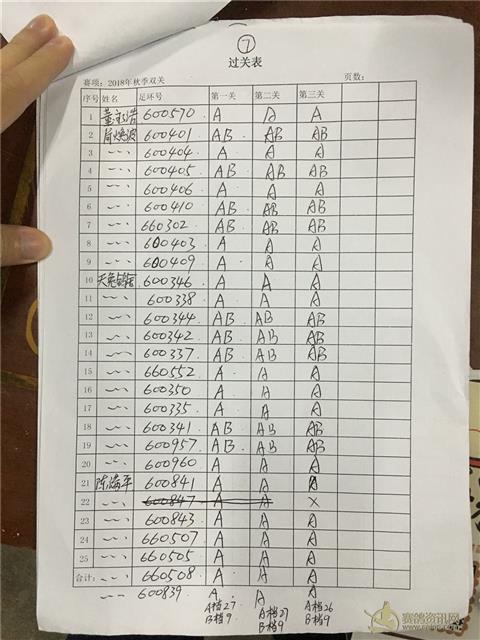 7
过关表
赛项：2018年秋季双关 页数：
序号 姓名 足环号 第一关 第二关 第三关
1 600570 A A A
2 600401 AB AB AB
3 〃 600404 A A A
4 〃 600405 AB AB AB
5 〃 600406 A A A
6 〃 600410 AB AB AB
7 〃 660302 AB AB AB
8 〃 600403 A A A
9 〃 600409 A A A
10 600346 A A A
11 〃 600338 A A A
12 〃 600344 AB AB AB
13 〃 600342 AB AB AB
14 〃 600337 AB AB AB
15 〃 660552 A A A
16 〃 600350 A A A
17 〃 600335 A A A
18 〃 600341 AB AB AB
19 〃 600957 AB AB AB
20 〃 600960 A A A
21 600841 A A A
22 〃 600847 A A ×
23 〃 600843 A A A
24 〃 660507 A A A
25 〃 660505 A A A
合计： 〃 660508 A A A
〃 600839 A A A
A档27 A档27 A档26
B档9 B档9 B档9
赛鸽资讯网